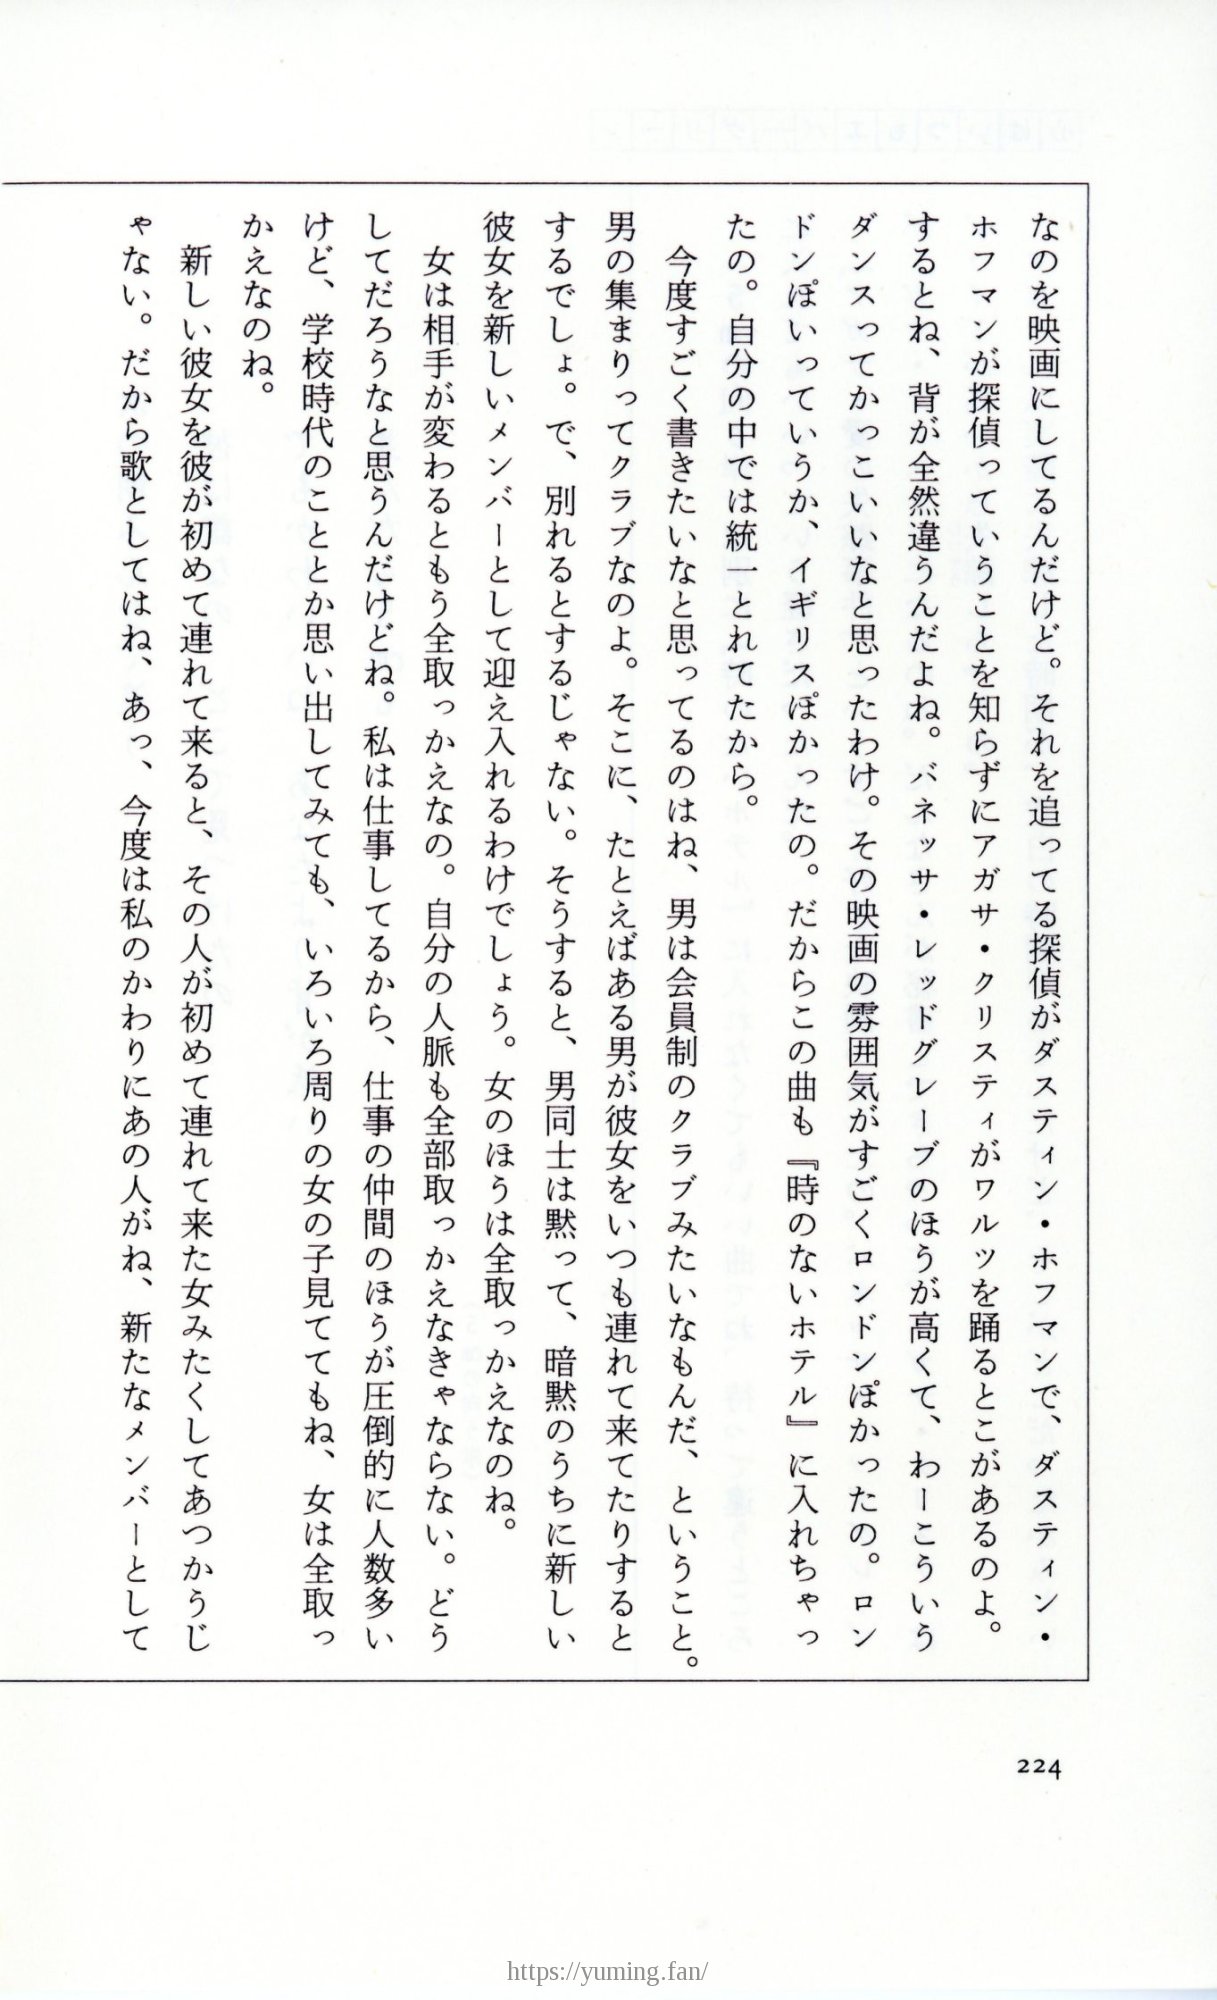 なのを映画にしてるんだけど。それを追ってる探偵がダスティン・ホフマンで、ダスティン・
ホフマンが探偵っていうことを知らずにアガサ・クリスティがワルツを踊るとこがあるのよ。
するとね、背が全然違うんだよね。バネッサ・レッドグレーブのほうが高くて、わーこういう
ダンスってかっこいいなと思ったわけ。その映画の雰囲気がすごくロンドンぽかったの。ロン
ドンぽいっていうか、イギリスぽかったの。だからこの曲も『時のないホテル』に入れちゃっ
たの。自分の中では統一とれてたから。
　今度すごく書きたいなと思ってるのはね、男は会員制のクラブみたいなもんだ、ということ。
男の集まりってクラブなのよ。そこに、たとえばある男が彼女をいつも連れて来てたりすると
するでしょ。で、別れるとするじゃない。そうすると、男同士は黙って、暗黙のうちに新しい
彼女を新しいメンバーとして迎え入れるわけでしょう。女のほうは全取っかえなのね。
　女は相手が変わるともう全取っかえなの。自分の人脈も全部取っかえなきゃならない。どう
してだろうなと思うんだけどね。私は仕事してるから、仕事の仲間のほうが圧倒的に人数多い
けど、学校時代のこととか思い出してみても、いろいろ周りの女の子見ててもね、女は全取っ
かえなのね。
　新しい彼女を彼が初めて連れて来ると、その人が初めて連れて来た女みたくしてあつかうじ
ゃない。だから歌としてはね、あっ、今度は私のかわりにあの人がね、新たなメンバーとして
224
https://yuming.fan/